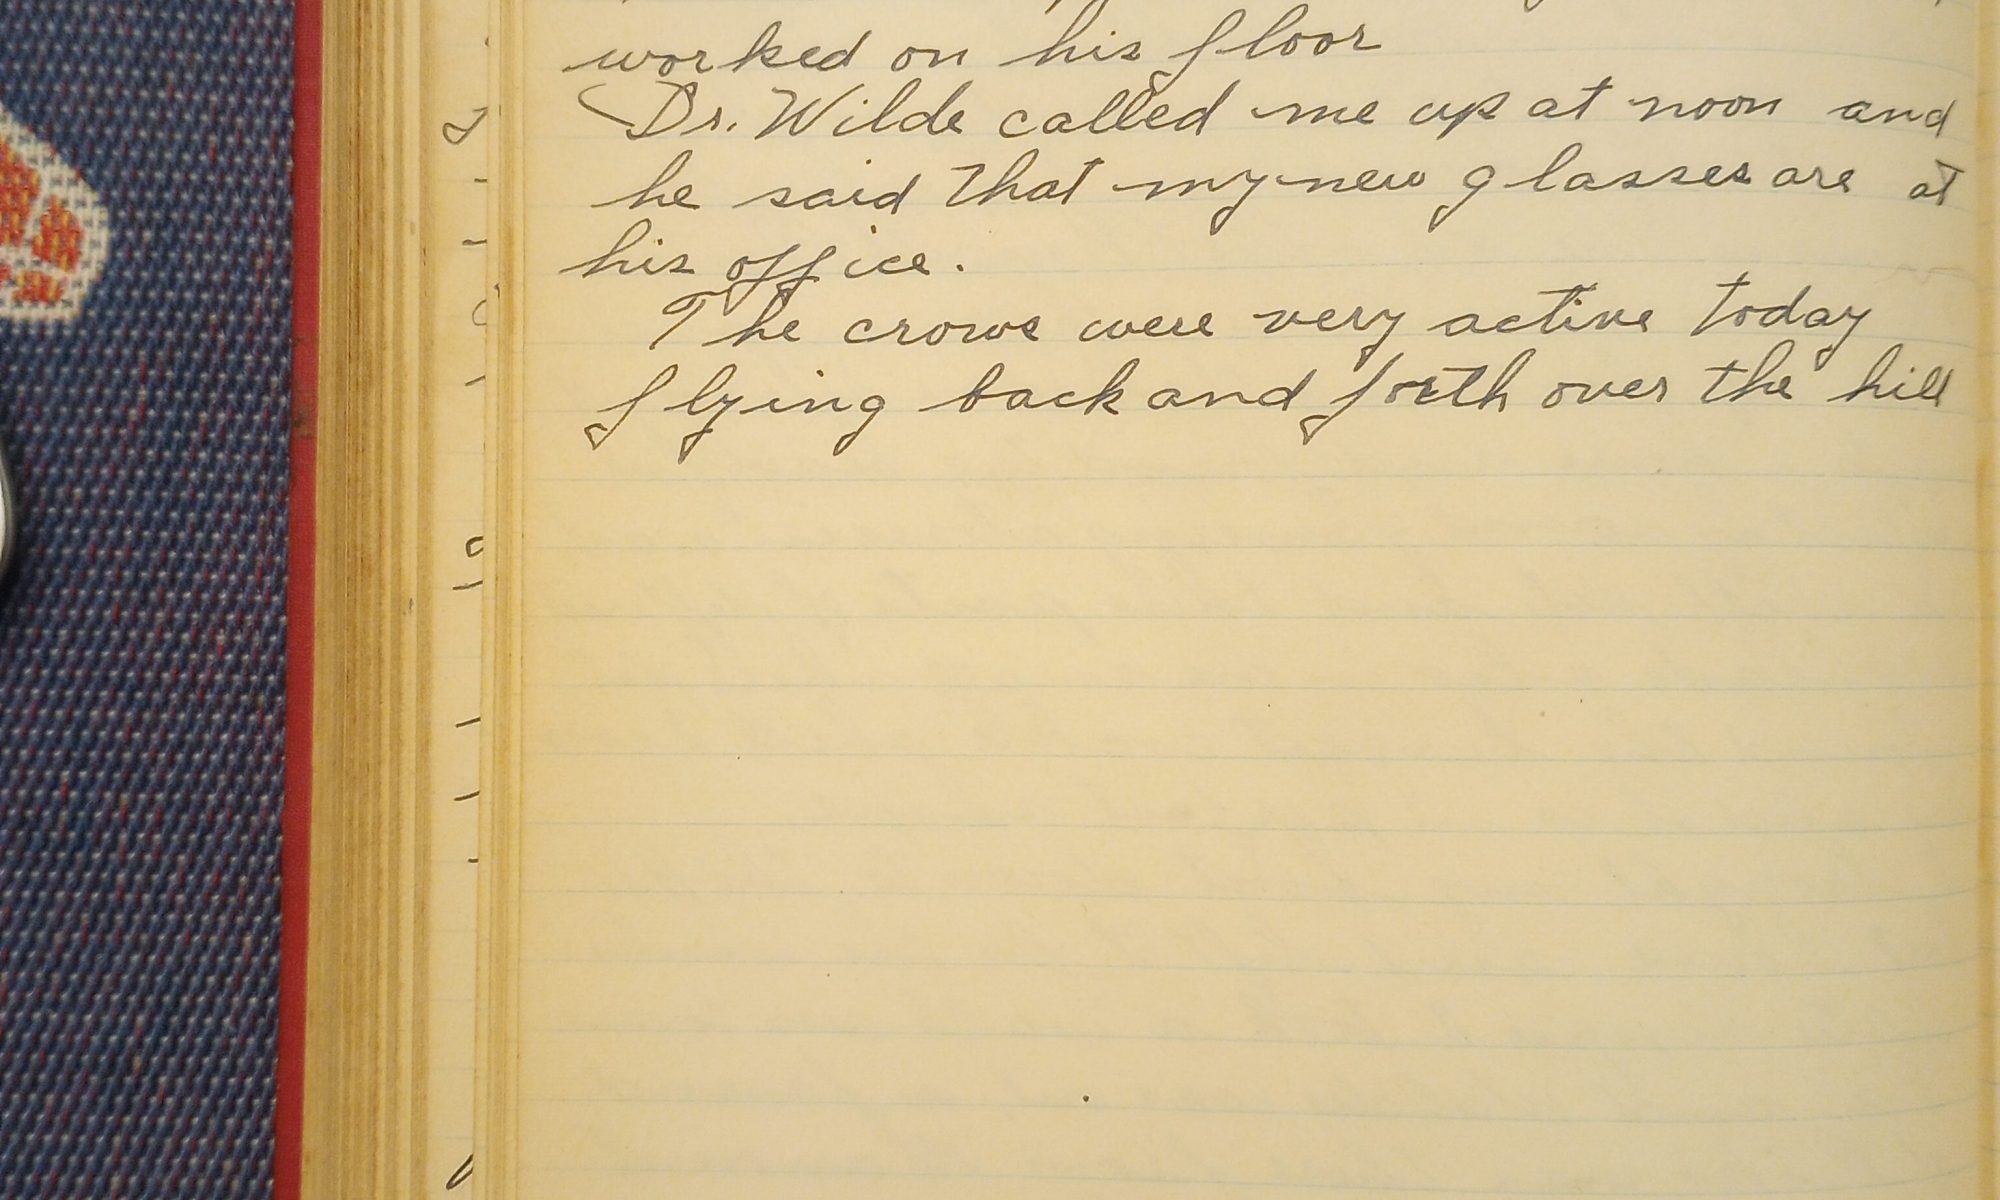 worked on his floor
Dr. Wilde called me up at noon and
he said that my new glasses are at
his office.
The crows were very active today
flying back and forth over the hill